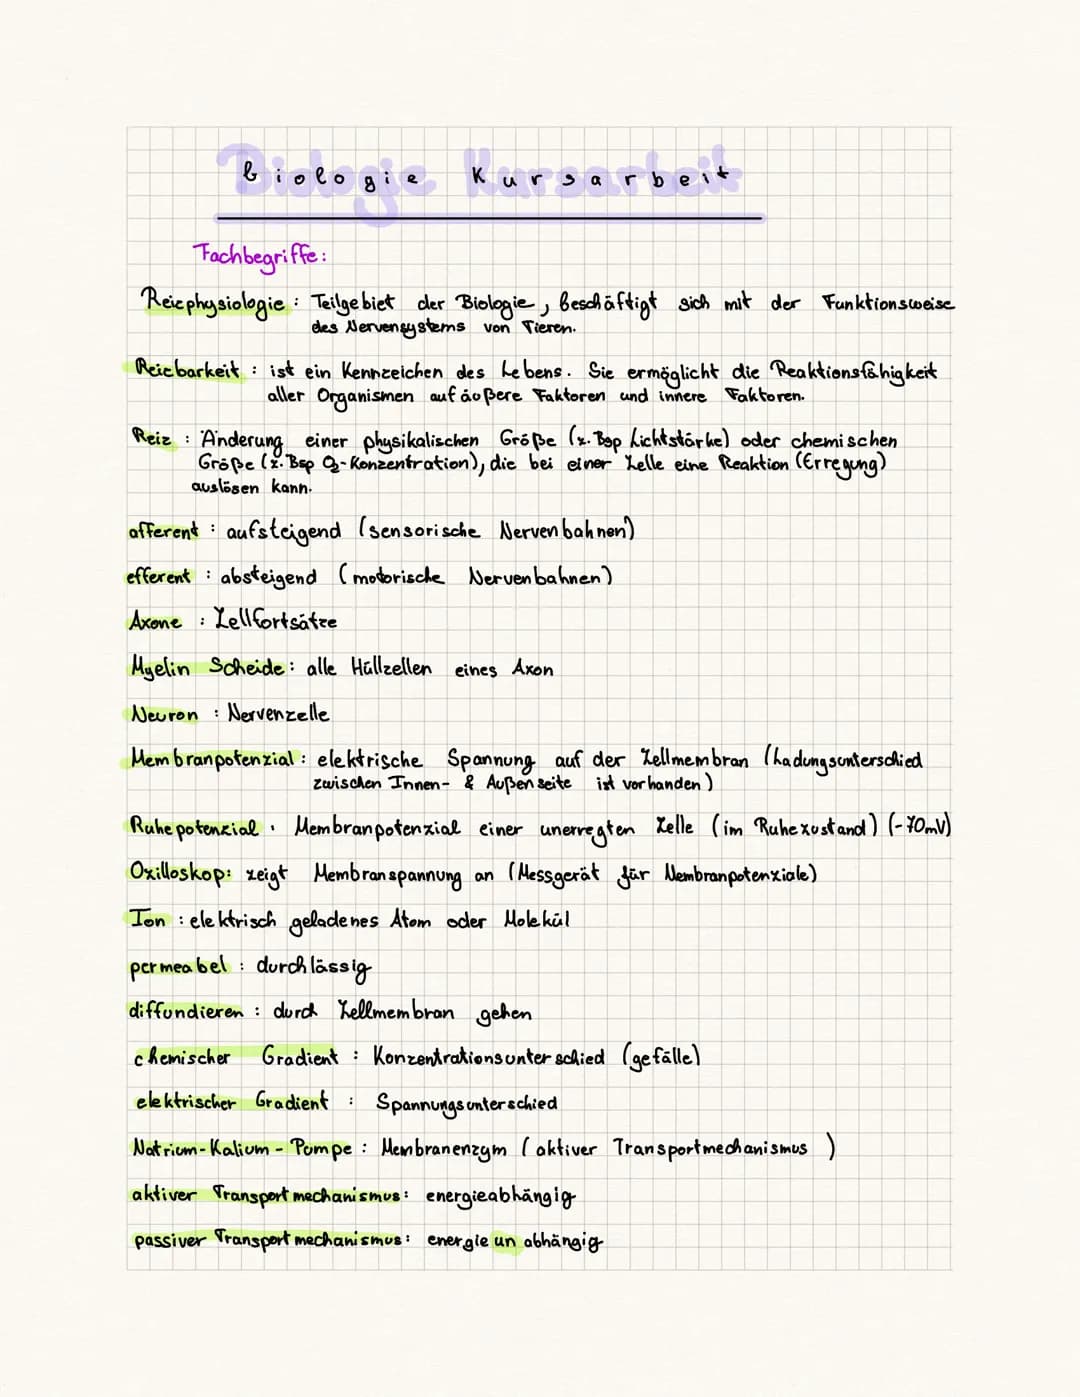 Biologie Kursarbeit
Fachbegriffe:
Reizphysiologie : Teilgebiet der Biologie, beschäftigt sich mit der Funktionsweise
des Nervensystems von Tieren.
Reizbarkeit : ist ein Kennzeichen des Lebens. Sie ermöglicht die Reaktionsfähigkeit
aller Organismen auf äußere Faktoren und innere Faktoren.
Reiz : Änderung einer physikalischen Größe (z. Bsp Lichtstärke) oder chemischen
Größe (z. Bsp O₂-Konzentration), die bei einer Zelle eine Reaktion (Erregung)
auslösen kann.
afferent : aufsteigend (sensorische Nervenbahnen)
efferent : absteigend (motorische Nervenbahnen)
Axone : Zellfortsätze
Myelin Scheide : alle Hüllzellen eines Axon
Neuron : Nervenzelle
Membranpotenzial : elektrische Spannung auf der Zellmembran (Ladungsunterschied
zwischen Innen- & Außenseite ist vorhanden)
Ruhepotenzial : Membranpotenzial einer unerregten Zelle (im Ruhezustand) (-70mV)
Oxilloskop: zeigt Membranspannung an (Messgerät für Membranpotenziale)
Ion : elektrisch geladenes Atom oder Molekül
permeabel : durchlässig
diffundieren : durch Zellmembran gehen
chemischer Gradient : Konzentrationsunterschied (gefälle)
elektrischer Gradient : Spannungsunterschied
Natrium-Kalium-Pumpe : Membranenzym (aktiver Transportmechanismus )
aktiver Transportmechanismus: energieabhängig
passiver Transportmechanismus: energie un abhängig